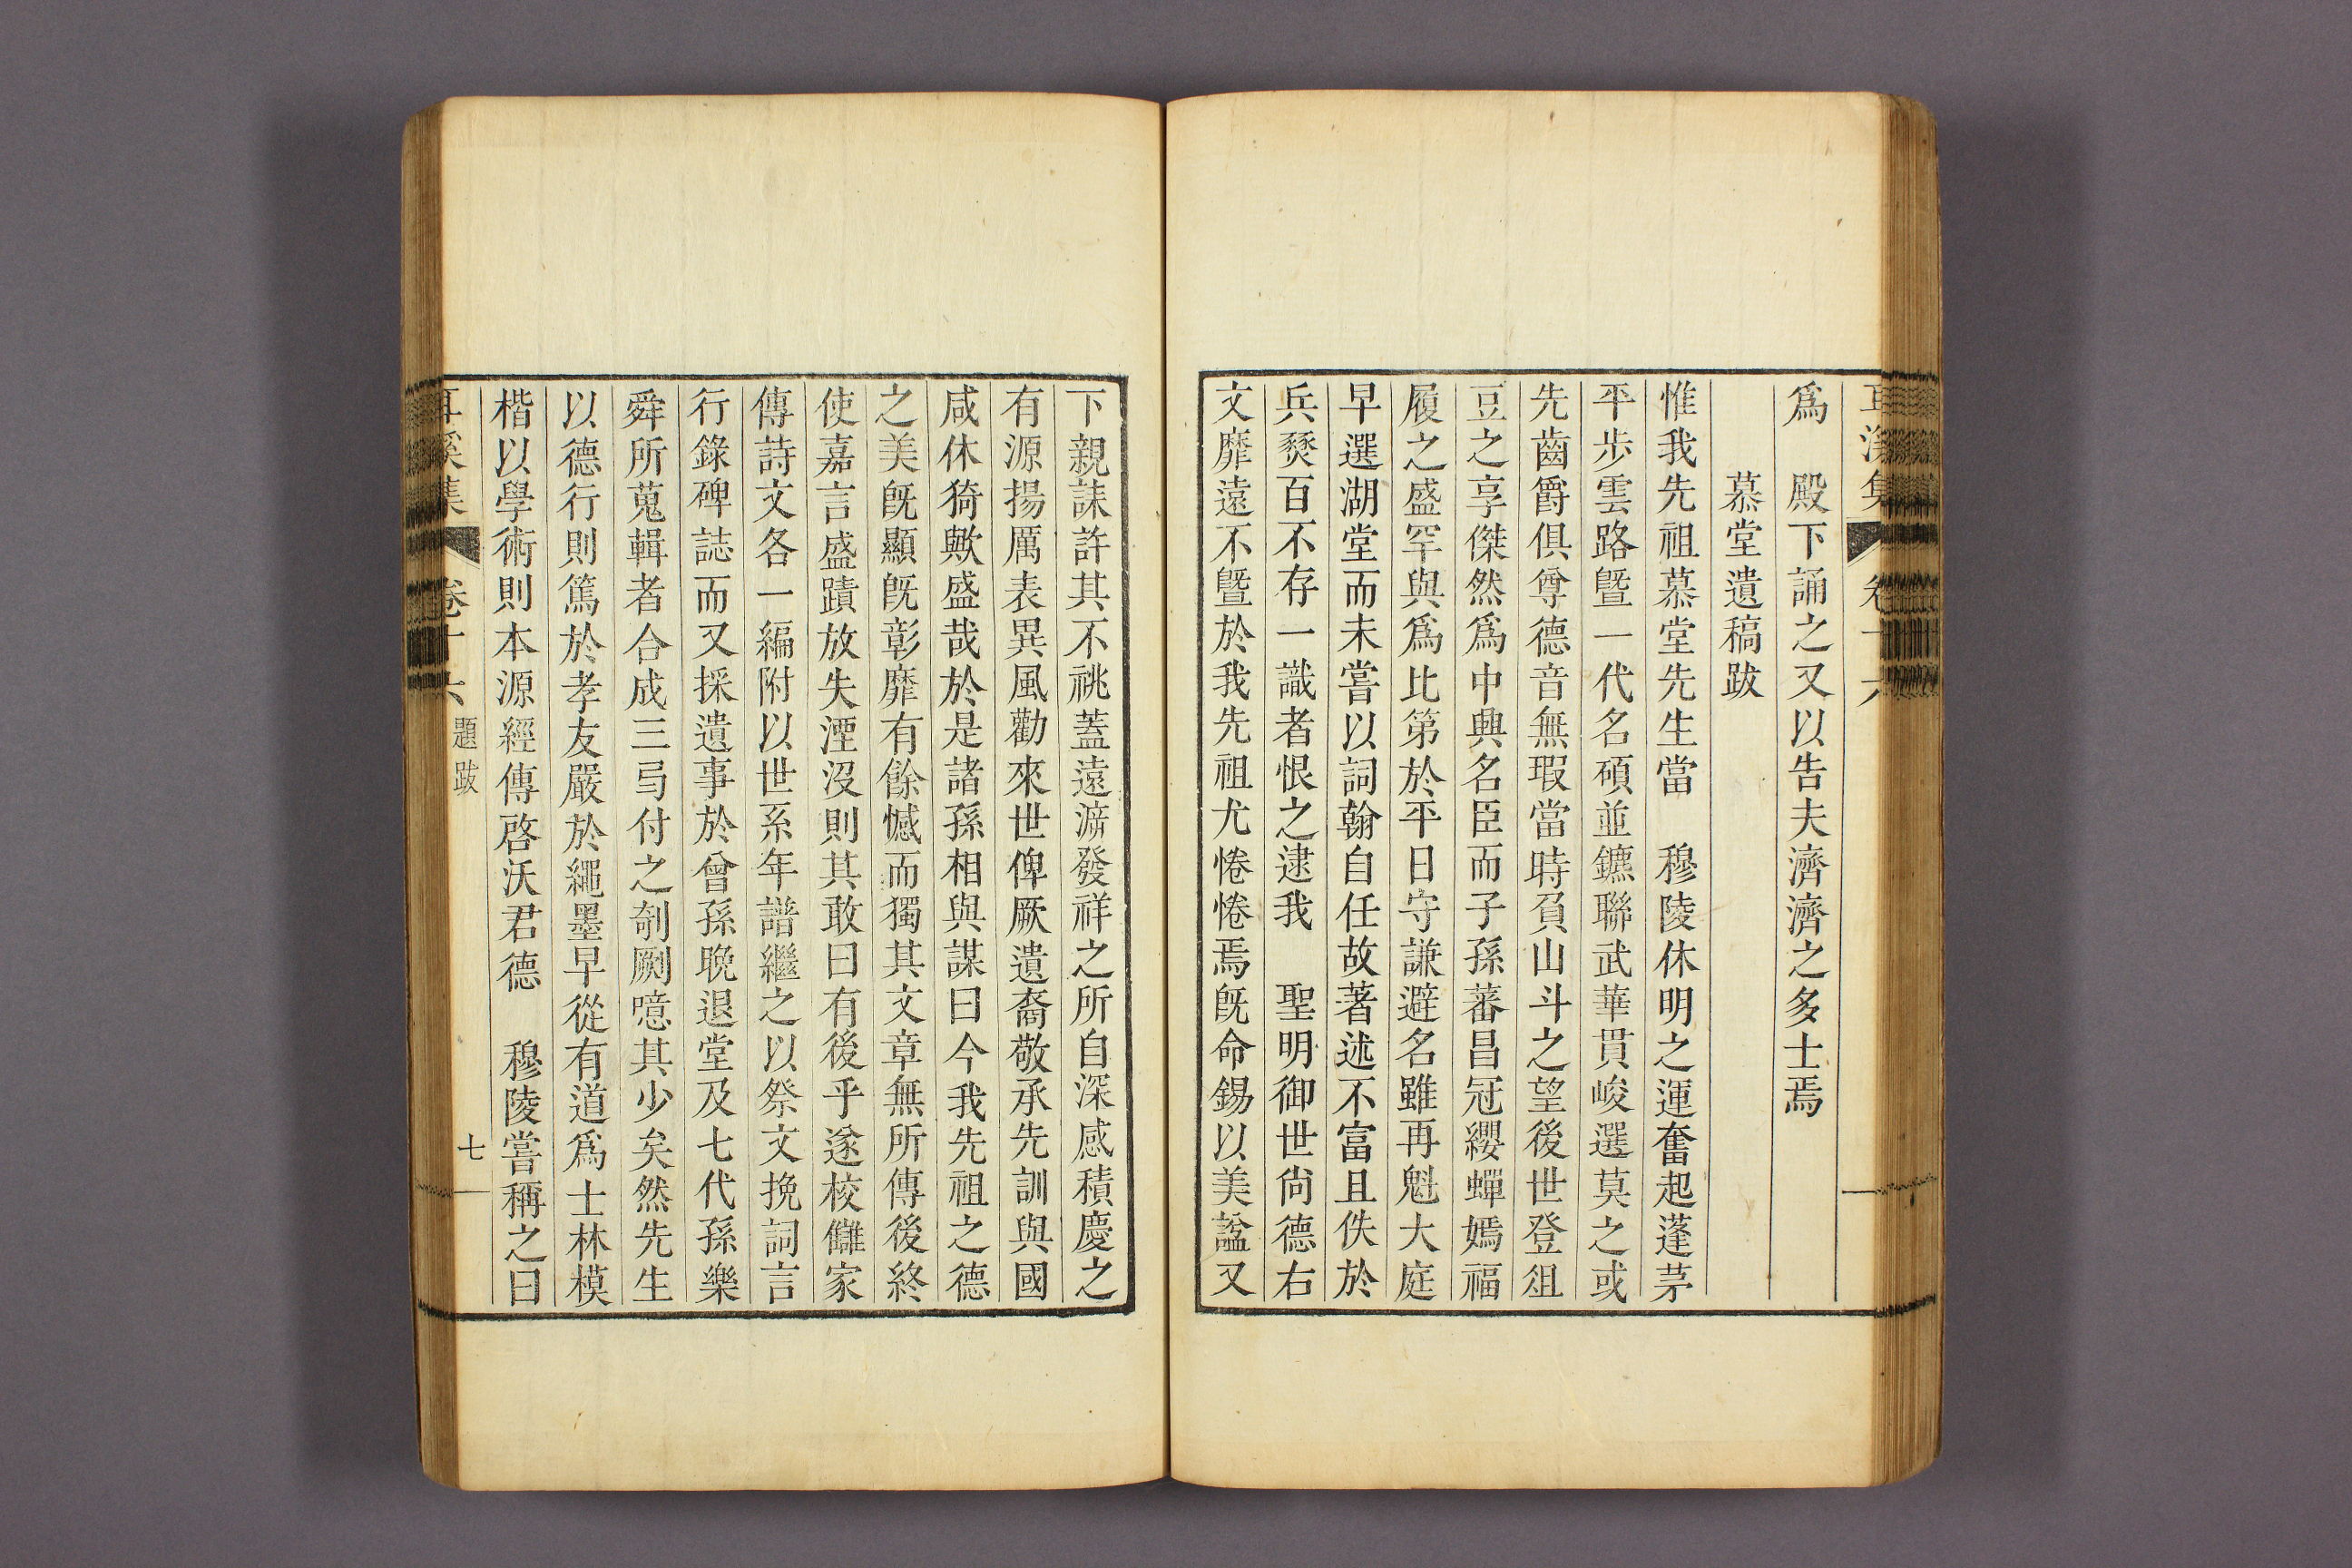 爲　殿下誦之又以告夫濟濟之多士焉
慕堂遺稿跋
惟我先祖慕堂先生當　穆陵休明之運奮起蓬茅
平步雲路曁一代名碩並鑣聯武華貫峻選莫之或
先齒爵俱尊德音無瑕當時負山斗之望後世登俎
豆之享傑然爲中興名臣而子孫蕃昌冠纓蟬嫣福
履之盛罕與爲比第於平日守謙避名雖再魁大庭
早選湖堂而未嘗以詞翰自任故著述不富且佚於
兵燹百不存一識者恨之逮我　聖明御世尙德右
文靡遠不曁於我先祖尤惓惓焉旣命錫以美諡又
下親誄許其不祧蓋遠㴑發祥之所自深感積慶之
有源揚厲表異風勸來世俾厥遺裔敬承先訓與國
咸休猗歟盛哉於是諸孫相與謀曰今我先祖之德
之美旣顯旣彰靡有餘憾而獨其文章無所傳後終
使嘉言盛蹟放失湮沒則其敢曰有後乎遂校讎家
傳詩文各一編附以世系年譜繼之以祭文挽詞言
行錄碑誌而又採遺事於曾孫晩退堂及七代孫樂
舜所蒐輯者合成三弓付之剞劂噫其少矣然先生
以德行則篤於孝友嚴於繩墨早從有道爲士林模
楷以學術則本源經傳啓沃君德　穆陵嘗稱之曰
耳溪集　卷十六　題跋　七